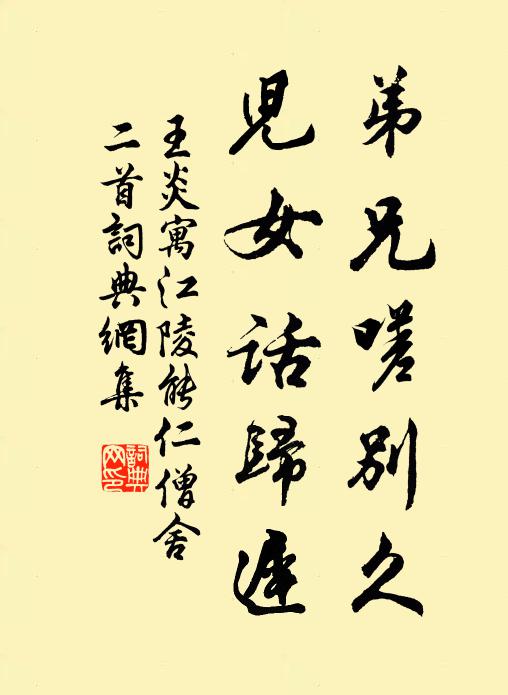 弟兄嗟別久
兒女話歸遲
王炎寓江陵能仁僧舍
二首詞典網集
詞典
网印